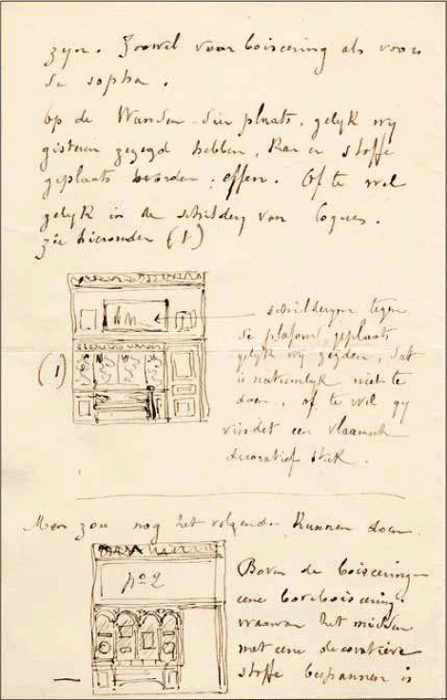 zyn. Zoowel voor boiseering als voor
de sopha.
op de Wanden dier plaats, gelyk wy
gisteren gezegd hebben, kan er stoffe
geplaats worden; effen. Of te wel
gelyk in de schildery van Coques.
zie hieronder (1)
schilderyen tegen
de plafond geplaats
gelyk wy zegden, dat
is natuurlyk niet te
doen, of te wel gy
vindet een vlaamsch
decoratief stuk.
(1)
Men zou nog het volgende kunnen doen.
No 2
Boven de boiseering
eene boiseering
waarvan het midden
met eene decoratieve
stoffe bespannen is